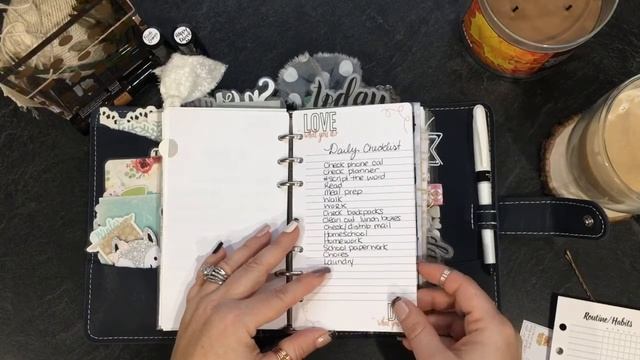 today
LOVE
what you do
Daily Checklist
Check phone cal
Check planner
#script the word
Read
Meal prep
Walk
Work
Check backpacks
Clean out lunch boxes
Check/distrib mail
Homeschool
Homework
School paperwork
Chores
Laundry
Routine/Habits